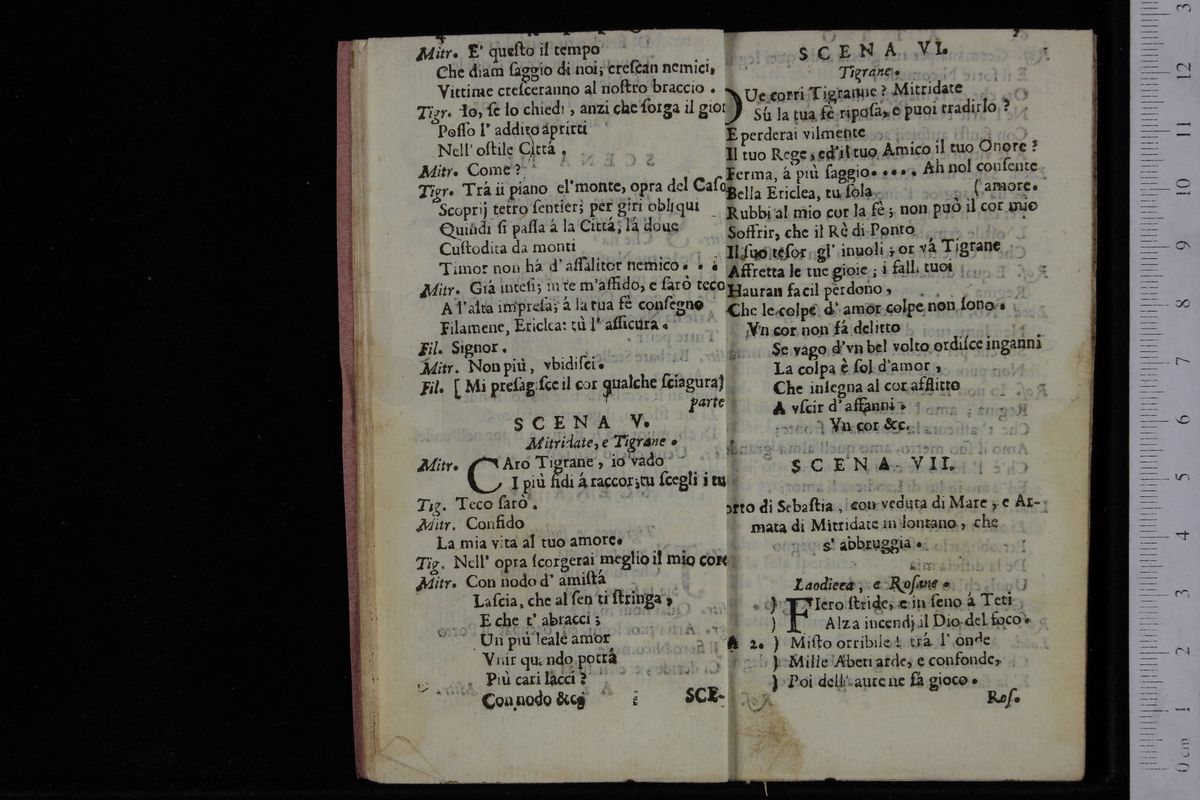 Mitr. E' queſto il tempo
Che diam ſaggio di noi; creſcan nemici,
Vittime creſceranno al noſtro braccio.
Tigr. Io, ſe lo chiedi, anzi che ſorga il gior
Poſſo l' addito aprirti
Nell' oſtile Cittá.
Mitr. Come?
Tigr. Trá il piano el'monte, opra del Caſo
Scoprij tetro ſentier; per giri obliqui
Quindi ſi paſſa á la Cittá, lá doue
Cuſtodita da monti
Timor non há d'aſſalitor nemico. . .
Mitr. Giá inteſi; in te m'affido, e farò teco
A l'alta impreſa; á la tua fè conſegno
Filamene, Ericlea: tù l' aſſicura.
Fil. Signor.
Mitr. Non più, vbidiſci.
Fil. [ Mi preſagiſce il cor qualche ſciagura]
parte
SCENA V.
Mitridate, e Tigrane.
Mitr. CAro Tigrane, io vado
I più fidi á raccor; tu ſcegli i tu
Tig. Teco ſarò.
Mitr. Confido
La mia vita al tuo amore.
Tig. Nell' opra ſcorgerai meglio il mio core
Mitr. Con nodo d' amiſtá
Laſcia, che al ſen ti ſtringa,
E che t' abracci;
Un più leale amor
Vnir quando potrá
Più cari lacci?
Con nodo &c.
SCE-
SCENA VI.
Tigrane.
OVe corri Tigranne? Mitridate
Sù la tua fè ripoſa, e puoi tradirlo?
E perderai vilmente
Il tuo Rege, ed'il tuo Amico il tuo Onore?
Ferma, á più ſaggio..... Ah nol conſente
Bella Ericlea, tu ſola (amore.
Rubbi al mio cor la fè; non può il cor mio
Soffrir, che il Rè di Ponto
Il ſuo teſor gl' inuoli; or vá Tigrane
Affretta le tue gioie; i falli tuoi
Hauran facil perdono,
Che le colpe d' amor colpe non ſono.
Vn cor non fá delitto
Se vago d'vn bel volto ordiſce inganni
La colpa è ſol d'amor,
Che inſegna al cor afflitto
A vſcir d'affanni.
Vn cor &c.
SCENA VII.
orto di Sebaſtia, con veduta di Mare, e Ar-
mata di Mitridate in lontano, che
s' abbruggia.
Laodicea, e Roſane.
) FIero ſtride, e in ſeno á Teti
) Alza incendj il Dio del foco.
A 2. ) Miſto orribile! trá l' onde
) Mille Abeti arde, e confonde,
) Poi dell' aure ne fá gioco.
Roſ.